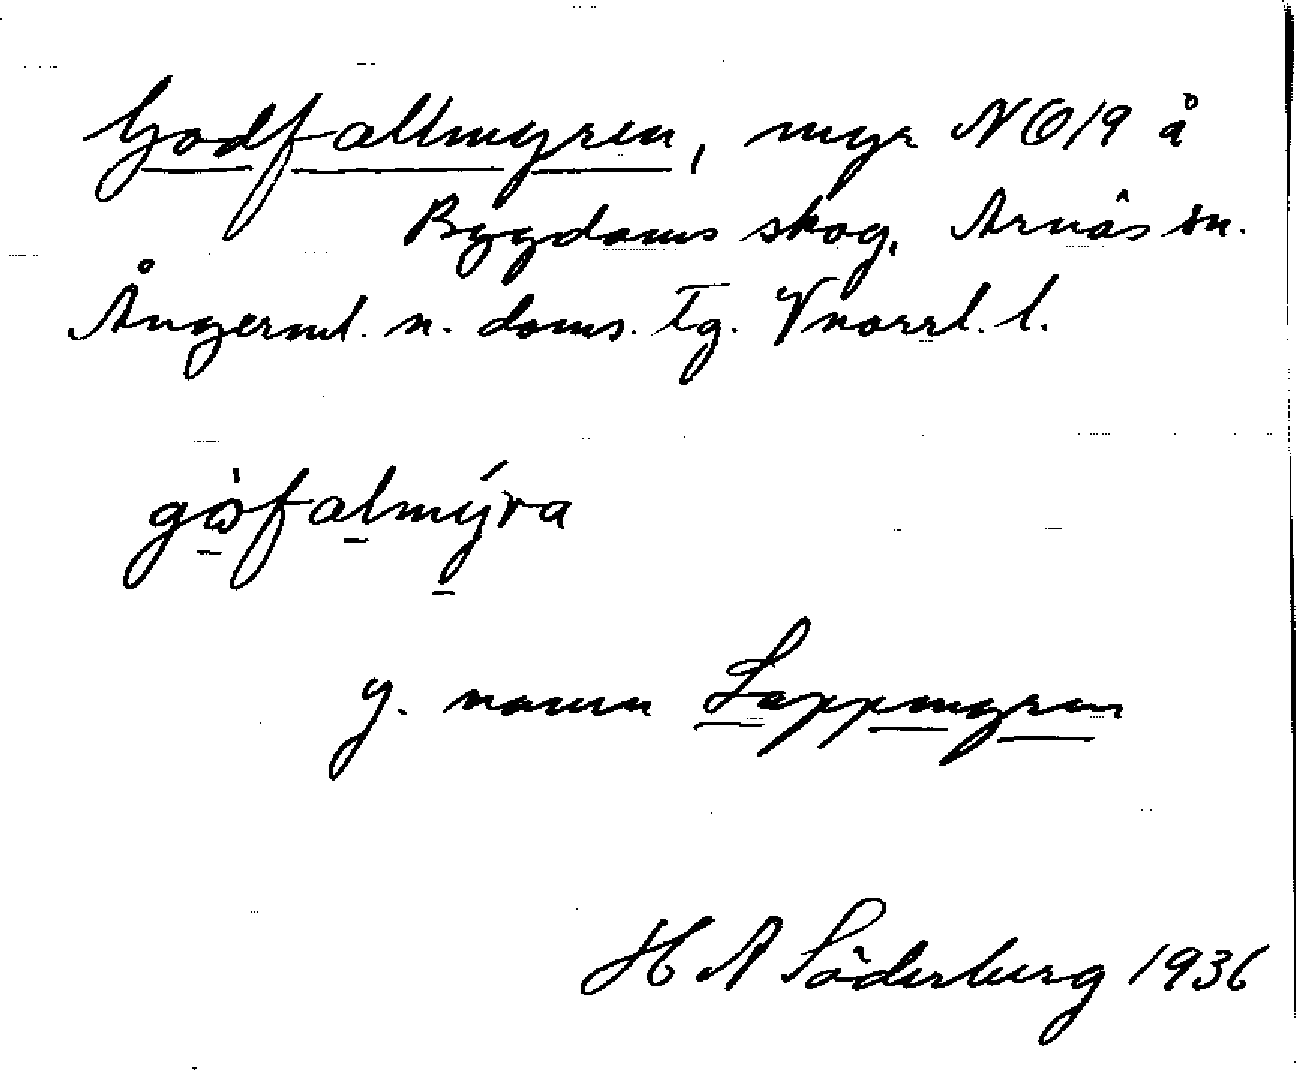 Godfallmyren, myr NO19 å
Bygdoms skog, Arnäs sn.
Ångerml. n. doms. Tg. Vnorrl. l.
gòfalmýra
g. namn Lappmyren
H A Söderberg 1936